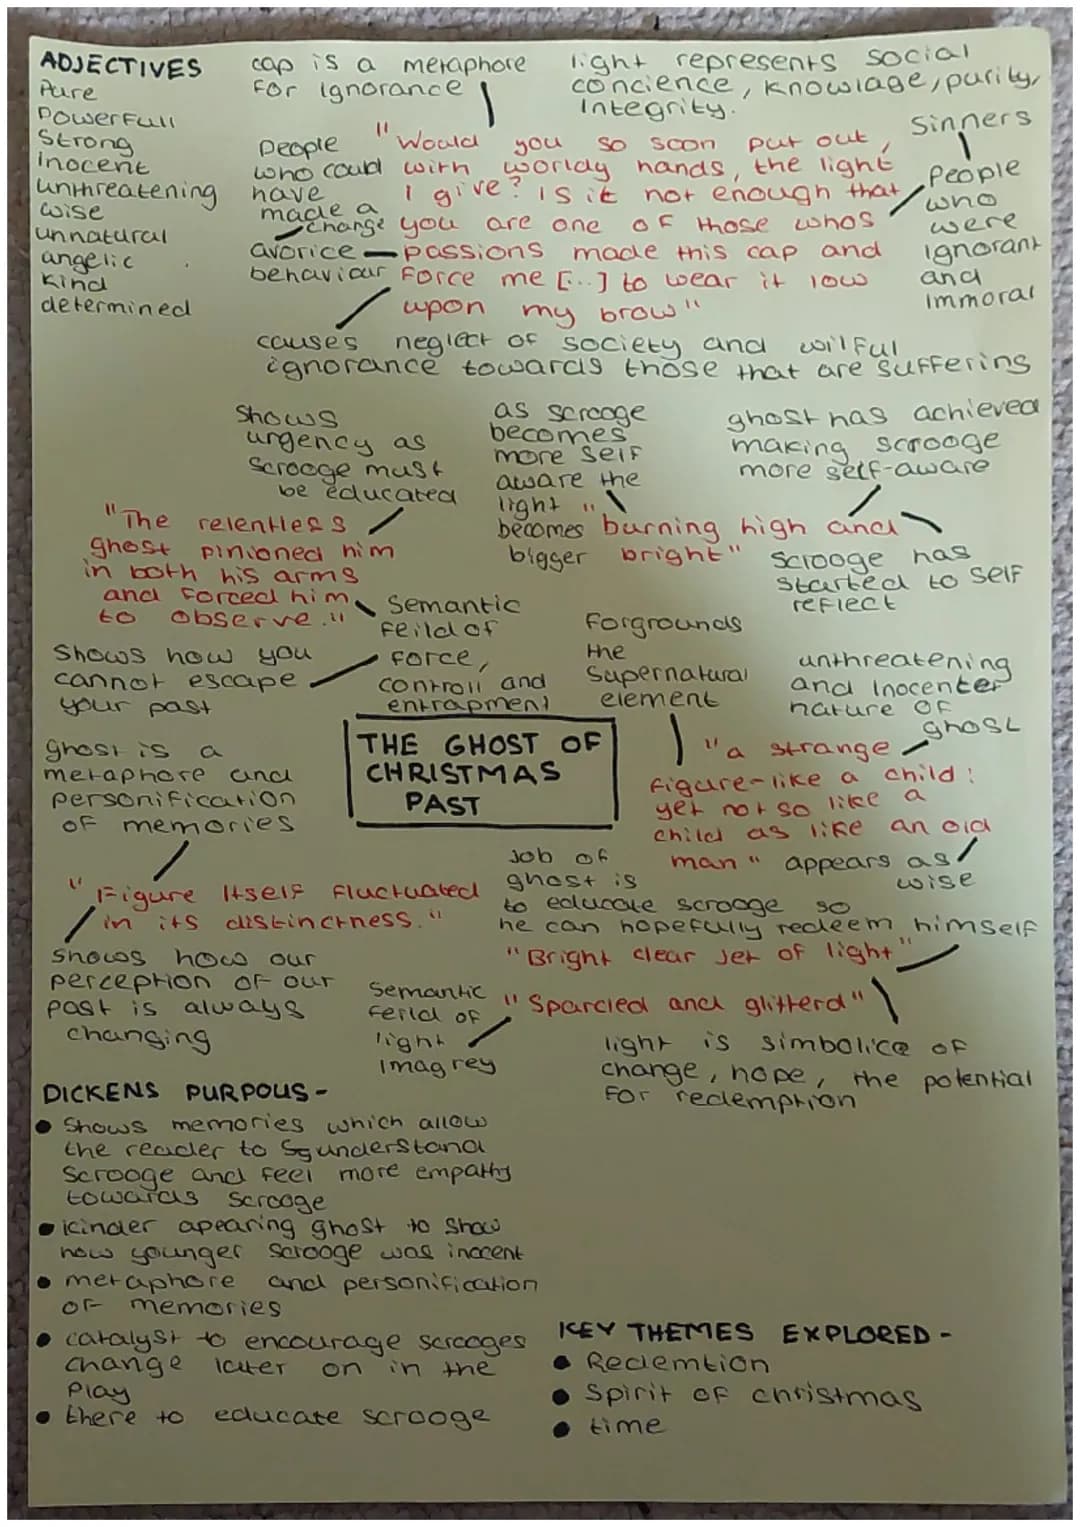 ADJECTIVES
Pure
Powerfull
Strong
inocent
unthreatening
wise
unnatural
angelic
kind
determined
cap is a metaphore
for ignorance
light represents social
concience, knowlage, purity,
Integrity.
Sinners
People
who
were
ignorant
and
immoral
People
who could
have
made a
change
avorice
behaviour
"Would you so soon put out,
with worldy hands, the light
I give? Is it not enough that
you are one of those whos
passions made this cap and
force me [...] to wear it low
upon my brow"
causes neglect of society and wilful
ignorance towards those that are suffering
Shows
urgency as
Scrooge must
be educated
as scrooge
becomes
more self
aware the
light
becomes
bigger
ghost has achieved
making scrooge
more self-aware
"The relentless
ghost pinioned him
in both his arms
and forced him
to observe."
"burning high and
bright"
Scrooge has
started to self
reflect
Semantic
feild of
force,
controll and
entrapment
Shows how you
cannot escape
your past
Forgrounds
the
Supernatural
element
unthreatening
and inocenter
nature of
ghost
THE GHOST OF
CHRISTMAS
PAST
ghost is a
metaphore and
personification
of memories
"a strange
figure-like a child:
yet not so like a
child as like an old
man"
appears as
wise
"Figure Itself fluctuated
in its distinctness."
Job of
ghost is
to educate scrooge so
he can hopefully redeem himself
"Bright clear jet of light"
Shows how our
perception of our
past is always
changing
Semantic
feild of
light
imagrey
"Sparcled and glitterd"
light is simbolice of
change, hope, the potential
for redemption
DICKENS PURPOUS-
• Shows memories which allow
the reader to understand
Scrooge and feel more empathy
towards Scrooge
• kinder apearing ghost to show
how younger scrooge was inocent
• metaphore and personification
of memories
• catalyst to encourage scrooges
change later on in the
Play
• there to educate scrooge
KEY THEMES EXPLORED-
• Redemtion
• Spirit of christmas
• time